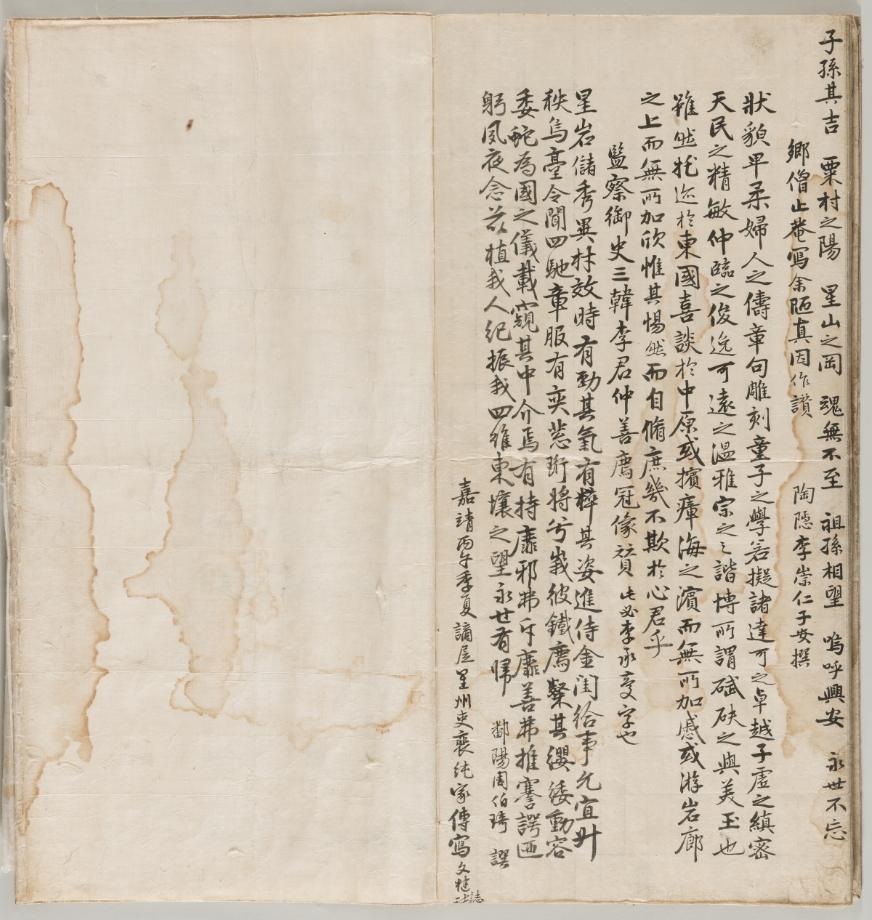 子孫其吉 粟村之陽 星山之岡 魂無不至 祖孫相望 嗚呼興安 永世不忘
鄉僧止菴寫余陋真因作讚 陶隱李崇仁子安撰
狀貌卑柔婦人之儔章句雕刻童子之學若擬諸達可之卓越子虛之縝密
天民之精敏仲臨之俊逸可遠之溫雅宗之之諧博所謂碔砆之與美玉也
雖然托迹於東國喜談於中原或擯瘴海之濱而無所加慼或游岩廊
之上而無所加欣惟其惕然而自脩庶幾不欺於心君乎
監察御史三韓李君仲善廌冠像贊 此必李承 字也
星岩儲秀異材效時有勁其氣有粹其姿進侍金閨給事允宜升
秩烏臺令聞四馳章服有奕葱珩將兮峩彼鐵廌繄其纓緌動容
委蛇為國之儀載窺其中介焉有持靡邪弗斥靡善弗推謇諤匪
躬夙夜念茲植我人紀振我四維東壤之望永世有歸 鄱陽周伯琦 譔
嘉靖丙午季夏謫居星州吏裵純家傳寫文楗